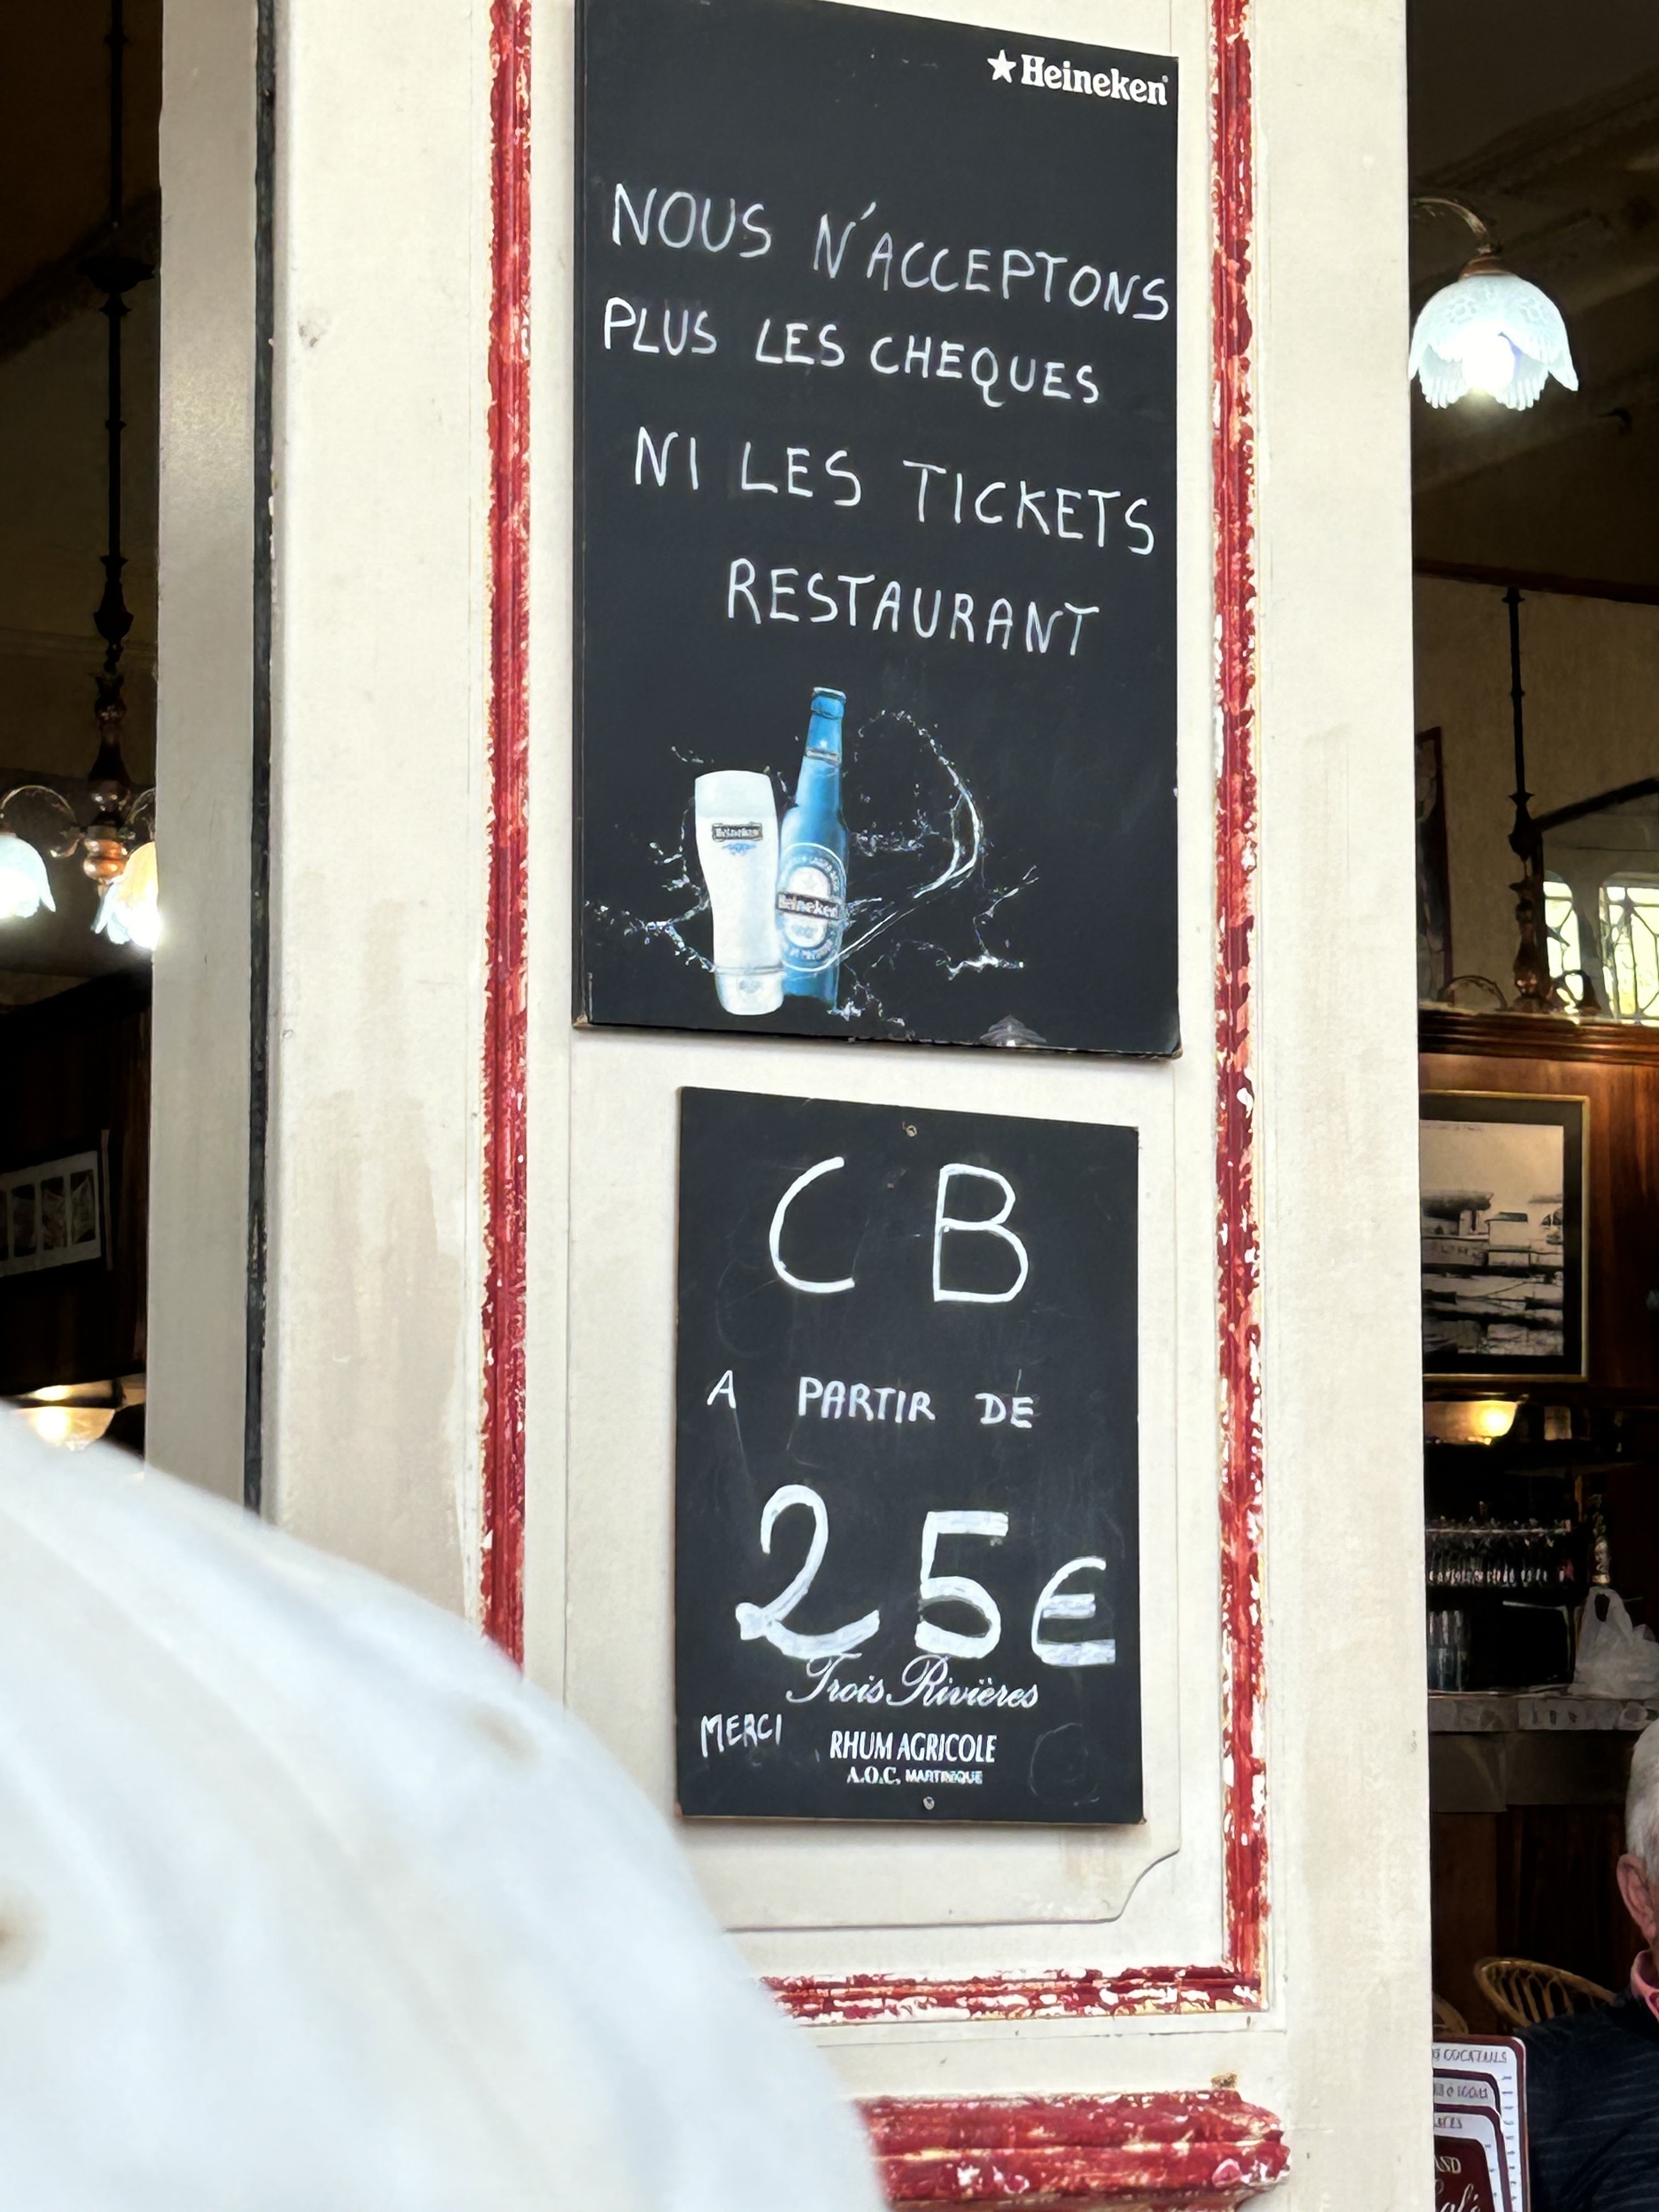 Heineken
NOUS N'ACCEPTONS
PLUS LES CHEQUES
NI LES TICKETS
RESTAURANT
Heineken
Heineken
CB
A PARTIR DE
25€
Trois Rivières
MERCI
RHUM AGRICOLE
A.O.C. MARTINIQUE
COCKTAILS